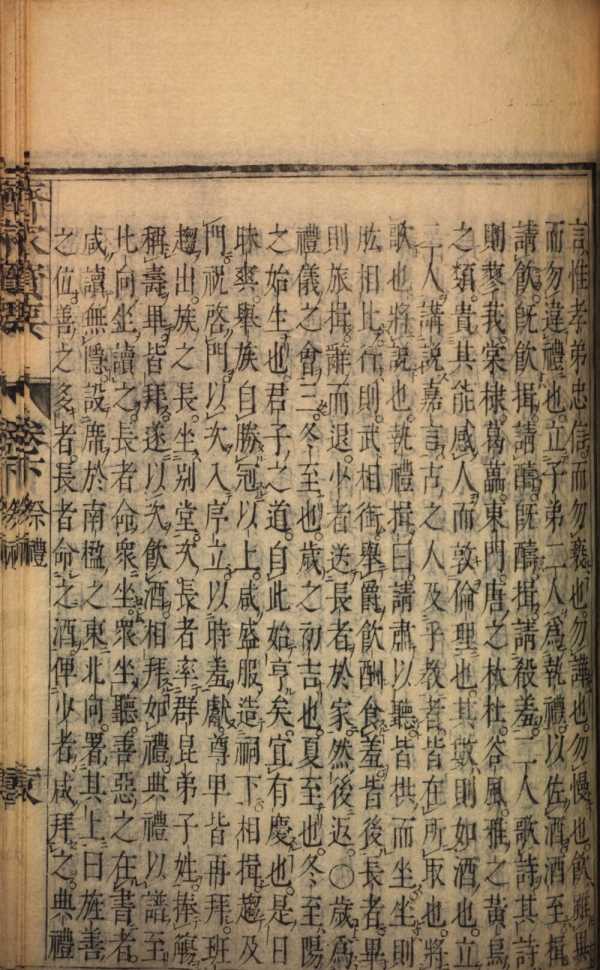 言惟孝弟忠信而勿褻也勿譁也勿慢也飲雖異
而勿違禮也立子弟二人爲執禮以佐酒酒至揖
請飲既飲揖請醻既醻揖請殽羞二人歌詩其詩
則蓼莪棠棣葛藟東門唐之杕杜谷風雅之黃鳥
之類貴其能感人而敦倫理也其數則如酒也立
二人講説嘉言古之人及乎教者皆在所取也將
歌也將説也執禮揖曰請肅以聽皆拱而坐坐則
肱相比行則武相銜舉爵飲酬食羞皆後長者畢
則旅揖辭而退少者送長者於家然後返〇歲爲
禮儀之會三冬至也歲之初吉也夏至也冬至陽
之始生也君子之道自此始亨矣宜有慶也是日
昧爽舉族自勝冠以上咸盛服造祠下相揖趨及
門祝啓門以次入序立以時羞獻尊卑皆再拜班
趨出族之長坐別堂次長者率群昆弟子姓捧觴
稱壽畢皆拜遂以次飲酒相拜如禮典禮以譜至
北向坐讀之長者命衆坐衆坐聽善惡之在書者
咸讀無隱設席於南楹之東北向署其上曰旌善
之位善之多者長者命之酒俾少者咸拜之典禮
齊家寶要
卷下
祭禮